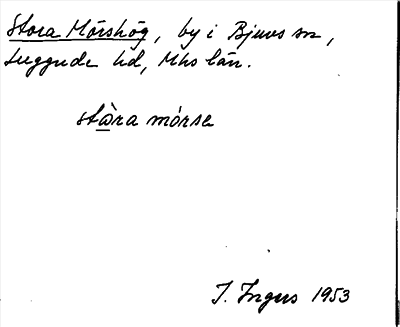 Stora Mörshög, by i Bjuvs sn,
Luggude hd, Mhs län.
stara mörse
J. Ingers 1953